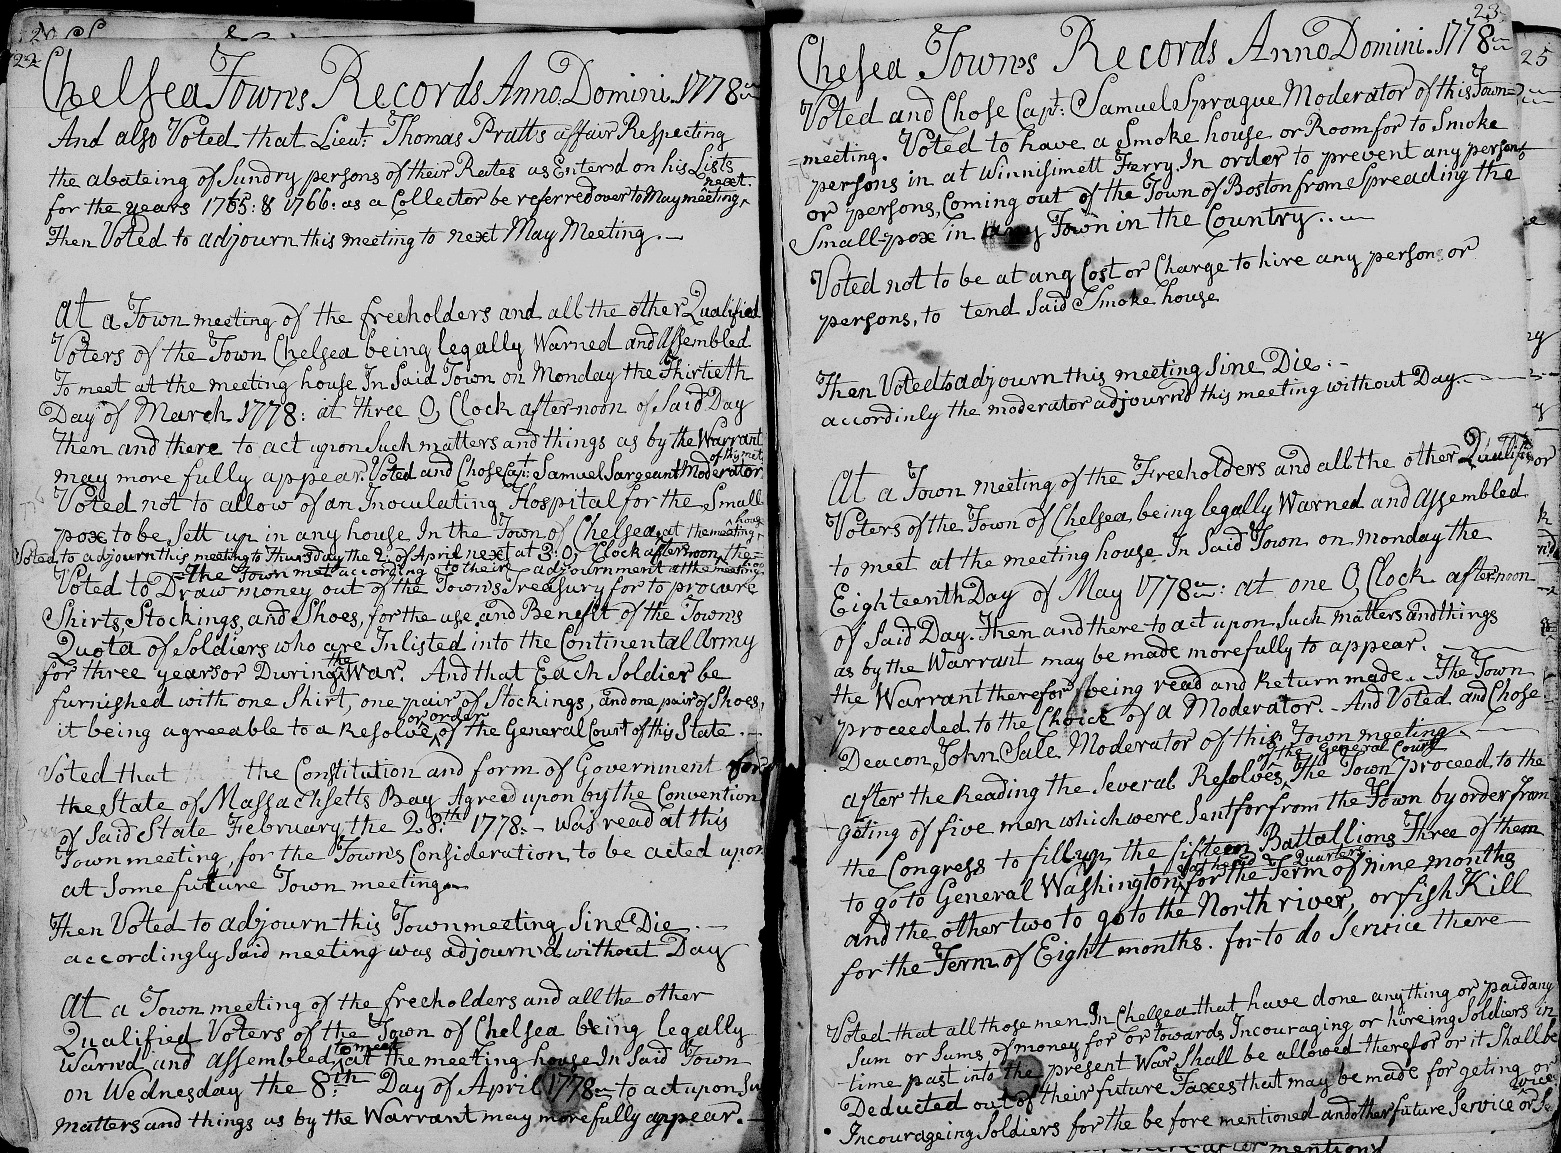 22
Chelsea Towns Records Anno Domini. 1778
And also Voted that Lieut: Thomas Pratts affair Respecting
the abateing of Sundry persons of their Rates as Enterd on his Lists
for the years 1765: & 1766: as a Collector be referred over to May meeting next.
Then Voted to adjourn this meeting to next May Meeting.
At a Town meeting of the freeholders and all the other Qualified
Voters of the Town Chelsea being legally Warned and Assembled
To meet at the meeting house In Said Town on Monday the Thirtieth
Day of March 1778: at three O, Clock afternoon of Said Day
Then and there to act upon Such matters and things as by the Warrant
may more fully appear. Voted and Chose Capt: Samuel Sargeant Moderator of this met
Voted not to allow of an Inoculating Hospital for the Small
pox to be Sett up in any house In the Town of Chelsea,
Voted to adjourn this meeting to Thursday the 2d of April next at 3: O, Clock afternoon at the meeting house
the Town met according to their adjournment at the meeting
Voted to Draw money out of the Towns Treasury for to procure
Shirts, Stockings, and Shoes, for the use, and Benefit of the Towns
Quota of Soldiers who are Inlisted into the Continental Army
for three years or During the War. And that Each Soldier be
furnished with one Shirt, one pair of Stockings, and one pair of Shoes,
it being agreeable to a Resolve or order of the General Court of this State.
Voted that the Constitution and form of Government for
the State of Massachsetts Bay Agreed upon by the Convention
of Said State February the 28th 1778: - was read at this
Town meeting, for the Towns Consideration, to be acted upon
at Some future Town meeting
Then Voted to adjourn this Town meeting Sine Die
accordingly Said meeting was adjournd without Day
At a Town meeting of the freeholders and all the other
Qualified Voters of the Town of Chelsea being legally
Warnd and Assembled, to meet at the meeting house In Said Town
on Wednesday the 8th Day of April 1778 to act upon Su
matters and things as by the Warrant may more fully appear.
23
Chelsea Towns Records Anno Domini. 1778
Voted and Chose Capt: Samuel Sprague Moderator of this Town
meeting. Voted to have a Smoke house or Room for to Smoke
persons in at Winnisimett Ferry. In order to prevent any person
or persons, Coming out of the Town of Boston from Spreading the
Small-pox in any Town in the Country
Voted not to be at any Cost or Charge to hire any person or
persons, to tend Said Smoke house
Then Voted to adjourn this meeting Sine Die.
accordinly the moderator adjournd this meeting without Day.
At a Town meeting of the Freeholders and all the other
Voters of the Town of Chelsea, being legally Warned and Assembled
to meet at the meeting house In Said Town on monday the
Eighteenth Day of May 1778: at one O, Clock afternoon
of Said Day. Then and there to act upon Such matters and things
as by the Warrant may be made more fully to appear.
the Warrant therefor being read and Return made. The Town
proceeded to the Choice of a Moderator. And Voted and Chose
Deacon John Sale Moderator of this Town meeting
after the Reading the Several Resolves of the General Court The Town proceed to the
geting of five men which were Sent for from the Town by order from
the Congress to fill up the fifteen Battallions Three of them
to go to General Washington, for the Term of nine months
and the other two to go to the North river, or fish Kill
for the Term of Eight months. for to do Service there
Voted that all those men In Chelsea that have done any thing or paid any
Sum or Sums of money for or towards Incouraging or hireing Soldiers in
time past into the present War, Shall be allowed therefor or it Shall be
Deducted out of their future Taxes that may be made for geting or
Incourageing Soldiers for the before mentioned and other future Service
25